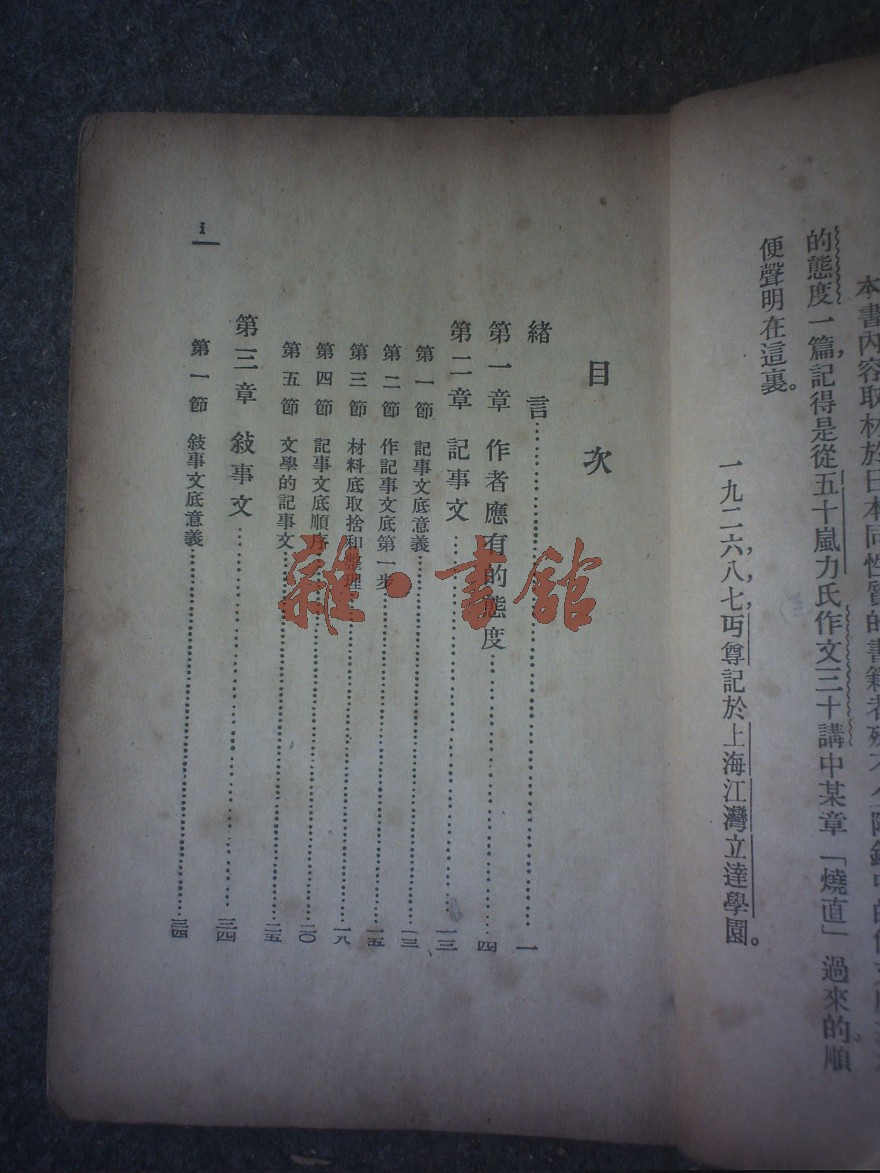 本書內容取材於日本同性質的書籍者殊不少附錄中的
的態度一篇，記得是從五十嵐力氏作文三十講中某章「燒直」過來的順
便聲明在這裏。
一九二六，八，七，丏尊記於上海江灣立達學園。
目次
緒言……一
第一章 作者應有的態度……四
第二章 記事文……一三
第一節 記事文底意義……一三
第二節 作記事文底第一步……一五
第三節 材料底取捨和整理……一八
第四節 記事文底順序……二〇
第五節 文學的記事文……二五
第三章 敍事文……三四
第一節 敍事文底意義……三四
i
雜·書館